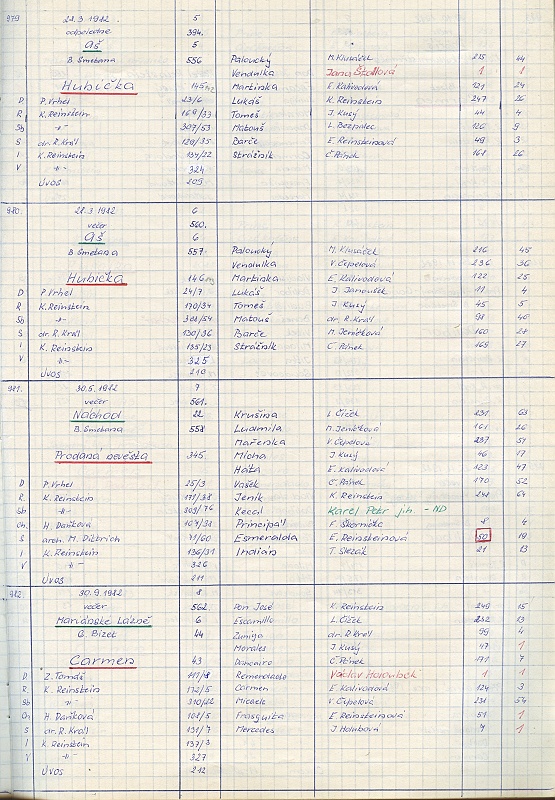 979 22.3.1982. 5
odpoledne 394.
Aš 5
B. Smetana 556 Paloucký M. Klusáček 215 44
Vendulka Jana Štollová 1 1
Hubička 145 Martinka E. Kalivodová 121 24
D P. Vrhel 23/6 Lukáš K. Reinstein 247 26
R K. Reinstein 169/33 Tomeš J. Kusý 44 4
Sb -"- 307/53 Matouš L. Bezpalec 126 9
S dr. R. Král 129/35 Barče E. Reinsteinová 49 3
I K. Reinstein 134/22 Strážník Č. Pánek 168 26
V -"- 324
ÚVOS 209
980. 22.3.1982 6
večer 560.
Aš 6
B. Smetana 557 Paloucký M. Klusáček 216 45
Vendulka V. Čepelová 236 36
Hubička 146 Martinka E. Kalivodová 122 25
D P. Vrhel 24/7 Lukáš J. Janoušek 11 4
R K. Reinstein 170/34 Tomeš J. Kusý 45 5
Sb -"- 308/54 Matouš dr. R. Král 98 40
S dr. R. Král 130/36 Barče M. Jeníčková 160 27
I K. Reinstein 135/23 Strážník Č. Pánek 169 27
V -"- 325
ÚVOS 210
981. 30.5.1982 7
večer 561.
Náchod 22 Krušina L. Čížek 231 63
B. Smetana 558 Ludmila M. Jeníčková 161 26
Mařenka V. Čepelová 237 51
Prodaná nevěsta 345 Mícha J. Kusý 46 17
Háta E. Kalivodová 123 47
D P. Vrhel 25/3 Vašek Č. Pánek 170 52
R. K. Reinstein 171/38 Jeník K. Reinstein 248 64
Sb -"- 309/76 Kecal Karel Petr j.h. - ND
Ch. H. Daňková 107/31 Principál F. Škornička 8 4
S arch. M. Dittrich 71/60 Esmeralda E. Reinsteinová 50 19
I K. Reinstein 136/31 Indián T. Slezák 21 13
V -"- 326
ÚVOS 211
982. 30.9.1982 8
večer 562. Don José K. Reinstein 249 15
Mariánské Lázně 6 Escamillo L. Čížek 232 13
G. Bizet 44 Zuniga dr. R. Král 99 4
Morales J. Kusý 47 1
Carmen 43 Dancairo Č. Pánek 171 7
D. Z. Tomáš 111/8 Remendado Václav Holoubek 1 1
R K. Reinstein 172/5 Carmen E. Kalivodová 124 3
Sb -"- 310/22 Micaela V. Čepelová 238 54
Ch H. Daňková 108/5 Frasquita E. Reinsteinová 51 1
S dr. R. Král 131/7 Mercedes J. Holubová 7 1
I K. Reinstein 137/3
V -"- 327
ÚVOS 212